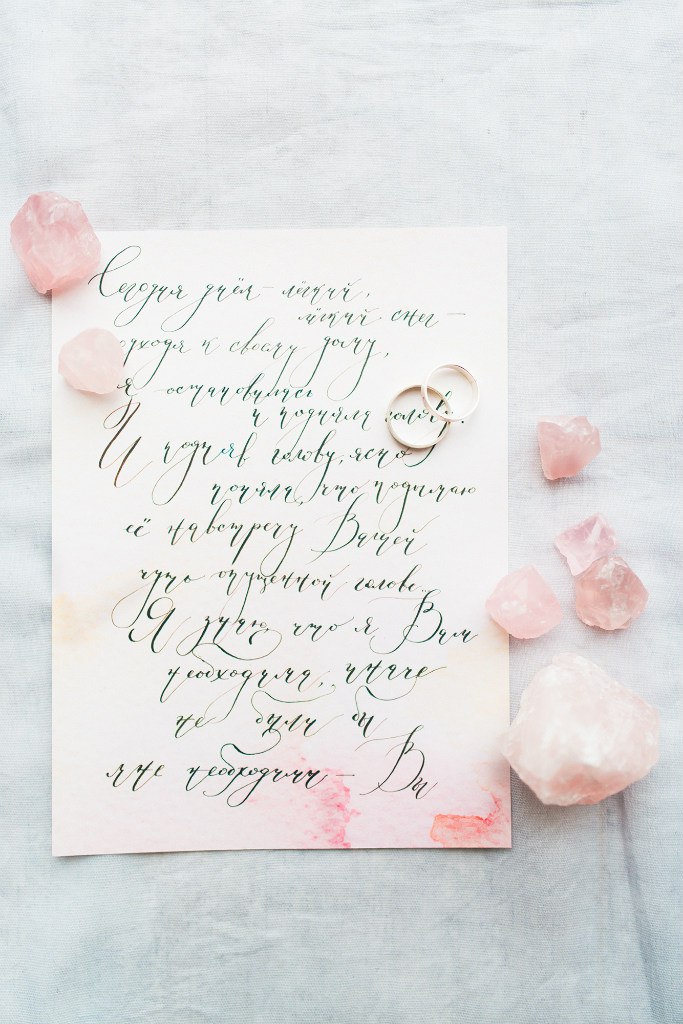 Сегодня днём – лёгкий,
лёгкий снег –
подходя к своему дому,
я остановилась
и подняла голову.
И подняв голову, ясно
поняла, что поднимаю
её навстречу Вашей
чуть опущенной голове.
Я знаю, что я Вам
необходима, иначе
не были бы
мне необходимы – Вы